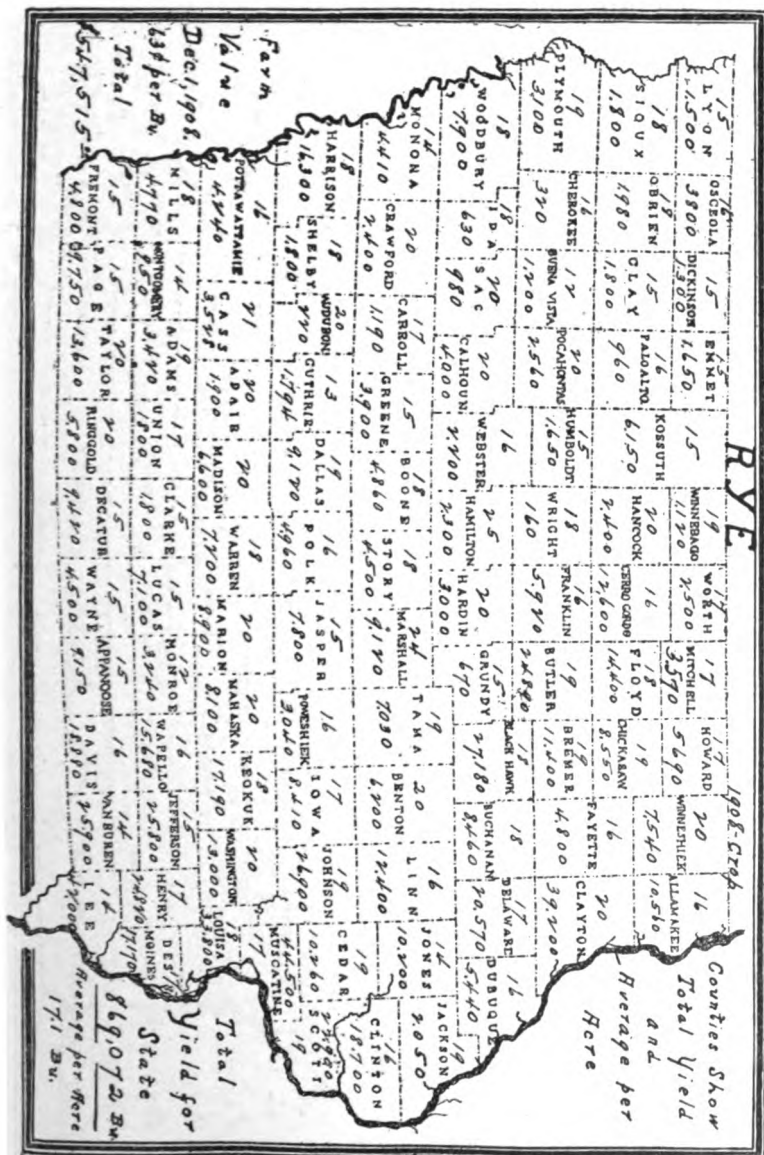 RYE
1908 Crop
Counties Show
Total Yield
and
Average per
Acre
15
LYON
1,500
OSCEOLA
3800
15
DICKINSON
1,300
15
EMMET
1,650
15
KOSSUTH
6,150
19
WINNEBAGO
1,120
17
WORTH
2,500
17
MITCHELL
3,570
17
HOWARD
5,690
20
WINNESHIEK
7,540
16
ALLAMAKEE
10,560
18
SIOUX
1,800
18
OBRIEN
1,980
15
CLAY
1,800
16
PALOALTO
960
20
HANCOCK
2,400
16
CERRO GORDO
12,600
18
FLOYD
14,400
19
CHICKASAW
8,550
19
PLYMOUTH
3,100
16
CHEROKEE
320
12
BUENA VISTA
1,200
20
POCAHONTAS
2,560
15
HUMBOLDT
1,650
18
WRIGHT
160
16
FRANKLIN
5,920
19
BUTLER
24,840
19
BREMER
11,400
16
FAYETTE
4,800
20
CLAYTON
39,200
18
WOODBURY
7,900
18
IDA
630
20
SAC
980
20
CALHOUN
4,000
16
WEBSTER
2,200
25
HAMILTON
2,300
20
HARDIN
3,000
15
GRUNDY
670
18
BLACK HAWK
27,180
18
BUCHANAN
8,460
17
DELAWARE
20,570
16
DUBUQUE
5,440
14
MONONA
4,410
20
CRAWFORD
2,400
17
CARROLL
1,190
15
GREENE
3,900
18
BOONE
4,860
18
STORY
4,500
24
MARSHALL
9,120
19
TAMA
7,030
20
BENTON
6,200
16
LINN
12,400
14
JONES
10,200
19
JACKSON
2,050
18
HARRISON
16,300
18
SHELBY
1,800
20
AUDUBON
220
13
GUTHRIE
1,794
19
DALLAS
9,120
16
POLK
4,960
15
JASPER
7,800
16
POWESHIEK
3,040
17
IOWA
8,410
19
JOHNSON
26,900
19
CEDAR
10,260
16
CLINTON
18,700
SCOTT
19
17
MUSCATINE
44,500
16
POTTAWATTAMIE
4,240
21
CASS
3,528
20
ADAIR
1,900
20
MADISON
6,600
18
WARREN
7,200
20
MARION
8,900
20
MAHASKA
8,100
18
KEOKUK
17,190
20
WASHINGTON
13,000
18
LOUISA
33,800
18
MILLS
4,770
14
MONTGOMERY
850
19
ADAMS
3,420
17
UNION
1,800
15
CLARKE
1,800
15
LUCAS
7,100
12
MONROE
3,240
16
WAPELLO
15,680
15
JEFFERSON
25,800
17
HENRY
DES
MOINES
15
FREMONT
4,800
15
PAGE
9,750
20
TAYLOR
13,600
20
RINGGOLD
5,800
15
DECATUR
9,420
15
WAYNE
4,500
15
APPANOOSE
9,150
16
DAVIS
18,880
14
VANBUREN
25,900
14
LEE
Farm
Value
Dec. 1, 1908.
63¢ per Bu.
Total
$547,515
Total
Yield for
State
869,072 Bu.
Average per Acre
17.1 Bu.